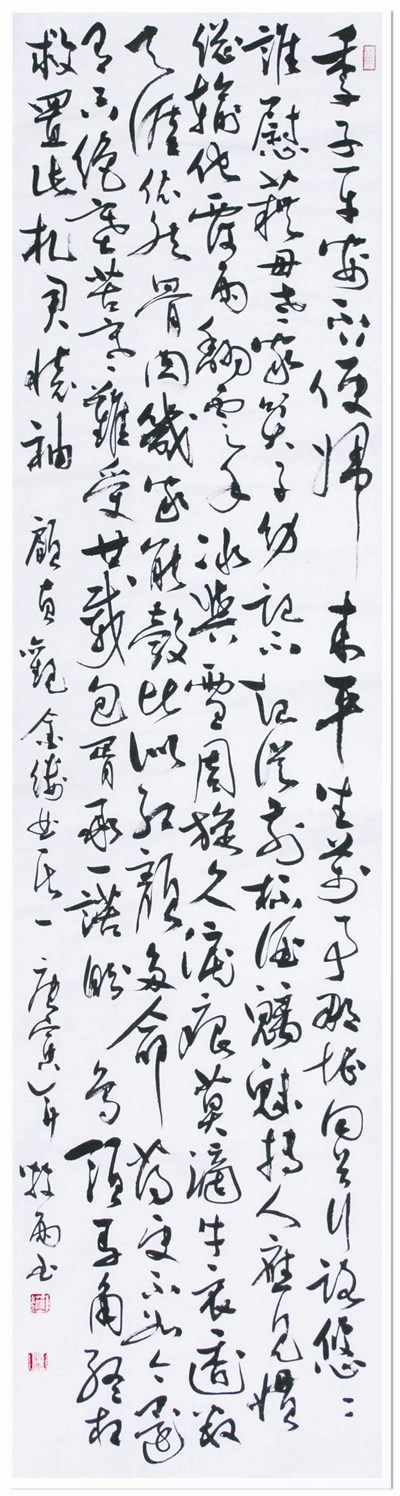 季子平安否便歸來平生萬事那堪回首行路悠悠
誰慰藉母老家貧子幼記不起從前杯酒魑魅搏人應見慣
總輸他覆雨翻雲手冰與雪周旋久淚痕莫滴牛衣透數
天涯依然骨肉幾家能彀比似紅顏多命薄更不如今還
有只絕塞苦寒難受廿載包胥承一諾盼烏頭馬角終相
救置此札君懷袖 顧貞觀金縷曲其一 庚寅年 雨書